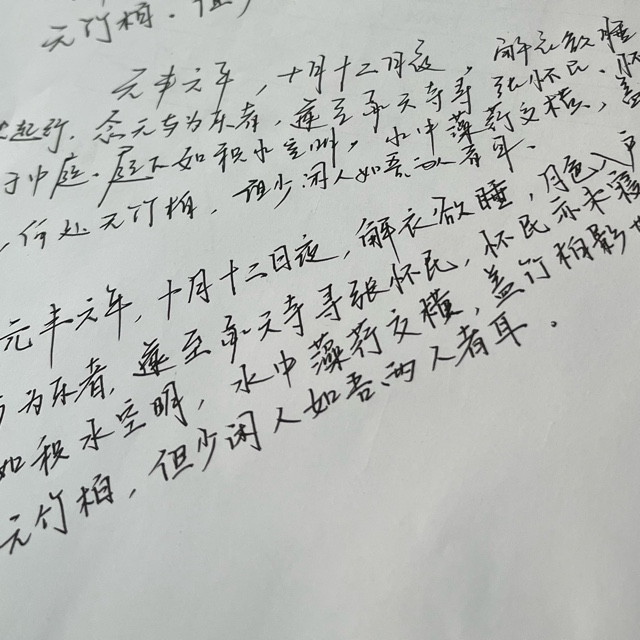 元竹柏．但少
元丰六年，十月十二月夜，解衣欲睡
起行．念元与为乐者，遂至承天寺寻张怀民．怀
于中庭．庭下如积水空明，水中藻荇交横，盖
何处元竹柏，但少闲人如吾两人者耳．
元丰六年，十月十二日夜，解衣欲睡，月色入户
与为乐者，遂至承天寺寻张怀民，怀民亦未寝
如积水空明，水中藻荇交横，盖竹柏影也
元竹柏，但少闲人如吾两人者耳．